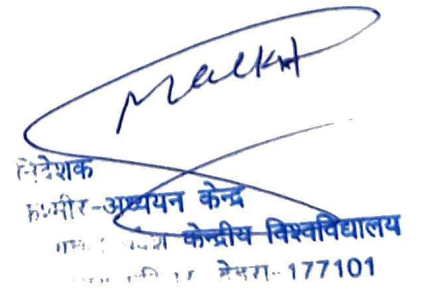 Malkit
निदेशक
कश्मीर-अध्ययन केन्द्र
केन्द्रीय विश्वविद्यालय
177101